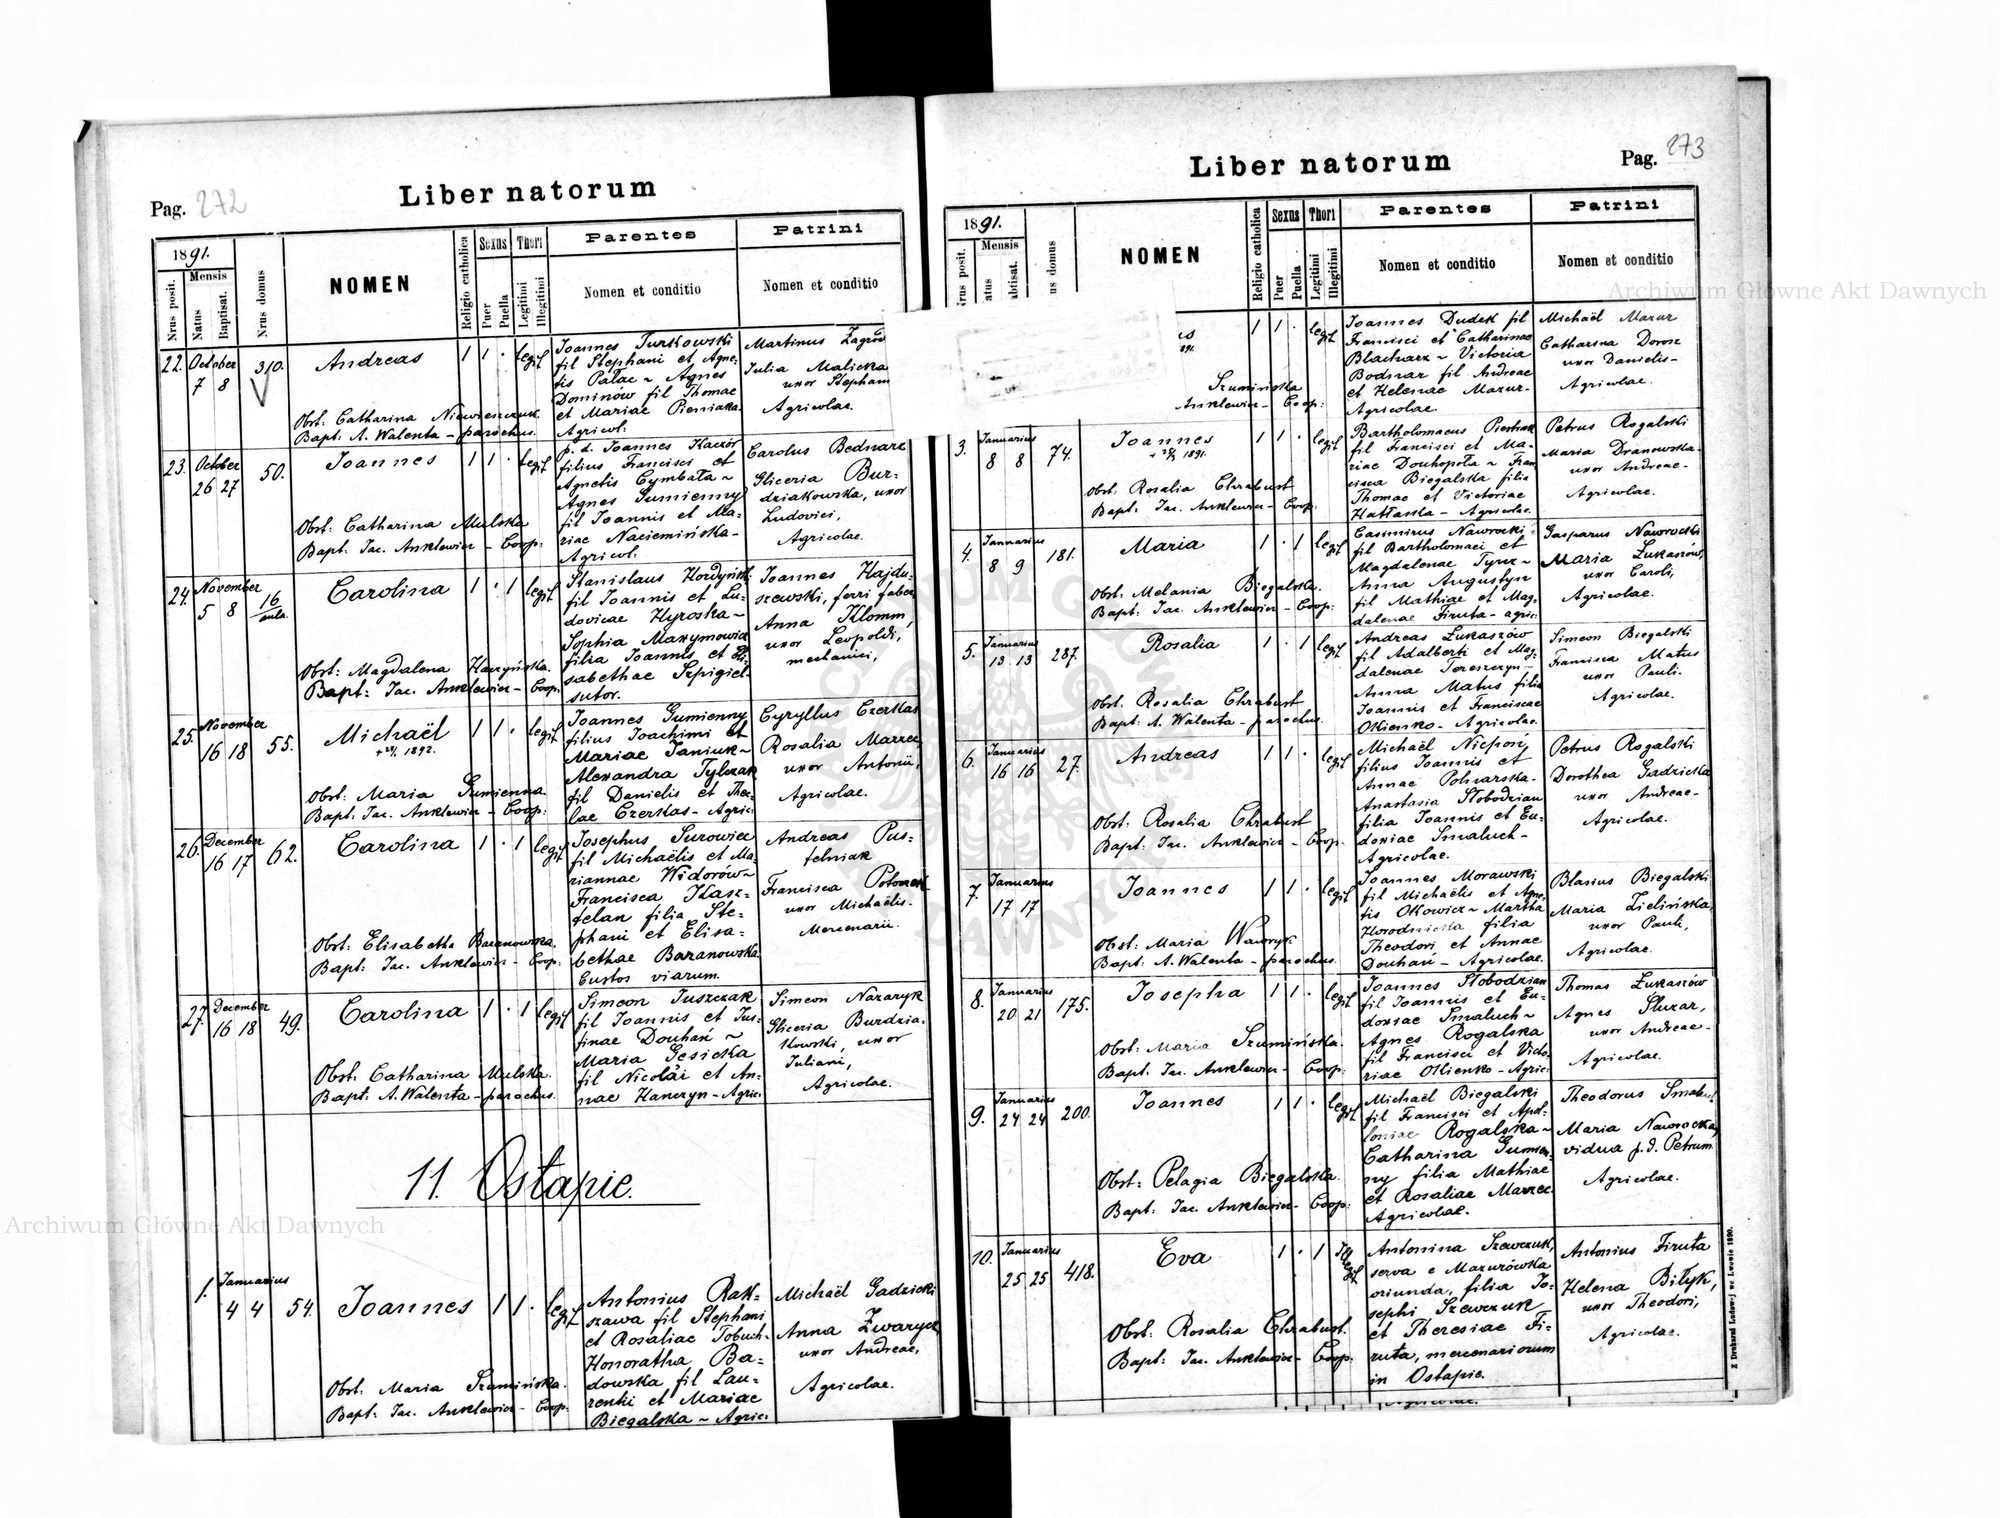 Pag. 272
Liber natorum
1891.
Nrus posit.
Mensis
Natus
Baptisat.
Nrus domus
NOMEN
Religio catholica
Sexus
Puer
Puella
Thori
Legitimi
Illegitimi
Parentes
Nomen et conditio
Patrini
Nomen et conditio
22. October
7 8
310.
Andreas
1 1 · legit
Obst: Catharina
Bapt: A. Walenta - parochus.
Joannes Turkowski
fil Stephani et Agne-
tis Pałac ~ Agnes
Dominów fil Thomae
et Mariae Pieniaka
Agricol:
Martinus
Julia Malicka
uxor Stephani
Agricolae.
23. October
26 27
50.
Joannes
1 1 · legit
Obst: Catharina Mulska
Bapt: Jac. Anklewicz - Coop:
p. d. Joannes Kaczor
filius Francisci et
Agnetis Cymbała ~
Agnes Gumienny
fil Joannis et Ma-
riae Naciemińska -
Agricol:
Carolus Bednarz
Gliceria Bur-
dziakowska, uxor
Ludovici,
Agricolae.
24. November
5 8
16
aula.
Carolina
1 · 1 legit
Obst: Magdalena Haczyńska.
Bapt: Jac. Anklewicz - Coop.
Stanislaus Hordyński
fil Joannis et Lu-
dovicae Hyroska ~
Sophia Maxymowicz
filia Joannis et Eli-
sabethae Szpigiel
sutor.
Joannes Hajdu-
szewski, ferri faber
Anna Klomm,
uxor Leopoldi,
mechanici,
25. November
16 18
55.
Michaël
1892.
1 1 · legit
Obst: Maria Gumienna.
Bapt: Jac. Anklewicz - Coop:
Joannes Gumienny
filius Joachimi et
Mariae Janiuk ~
Alexandra Tylczak
fil Danielis et The-
lae Czerkas - Agric:
Cyryllus Czerkas
Rosalia Marzec,
uxor Antonii,
Agricolae.
26. December
16 17
62.
Carolina
1 · 1 legit
Obst: Elisabetha Baranowska.
Bapt: Jac. Anklewicz - Coop:
Josephus Surowiec
fil Michaëlis et Ma-
riannae Widorów ~
Francisca Kasz-
telan filia Ste-
phani et Elisa-
bethae Baranowska
Custos viarum.
Andreas Pus-
telniak
Francisca
uxor Michaëlis -
Mercenarii.
27. December
16 18
49.
Carolina
1 · 1 legit
Obst: Catharina Mulska.
Bapt: A. Walenta - parochus.
Simeon Juszczak
fil Joannis et Jus-
tinae Douhań ~
Maria Gesicka
fil Nicolai et An-
nae Hanczyn - Agric:
Simeon Nazaryk
Gliceria Burdzia-
kowski, uxor
Juliani,
Agricolae.
11. Ostapie.
1. Januarius
4 4
54.
Joannes
1 1 · legit
Obst: Maria Szumińska.
Bapt: Jac. Anklewicz - Coop.
Antonius Rak-
szawa fil Stephani
et Rosaliae Tobuch -
Honoratha Ba-
dowska fil Lau-
rentii et Mariae
Biegalska ~ Agric:
Michaël Gadzicki
Anna Zwarycz
uxor Andreae,
Agricolae.
Liber natorum
Pag. 273
1891.
Mensis
NOMEN
Religio catholica
Sexus
Puer
Puella
Thori
Legitimi
Illegitimi
Parentes
Nomen et conditio
Patrini
Nomen et conditio
1 1 · legit
Szumińska
Anklewicz - Coop:
Joannes Dudek fil
Francisci et Catharinae
Blacharz ~ Victoria
Bodnar fil Andreae
et Helenae Mazur -
Agricolae.
Michaël Mazur
Catharina Dorosz
uxor Danielis -
Agricolae.
3. Januarius
8 8
74.
Joannes
1891.
1 1 · legit
Obst: Rosalia Chrabust
Bapt: Jac. Anklewicz - Coop:
Bartholomaeus
fil Francisci et Ma-
riae Douhopoła ~ Fran
cisca Biegalska filia
Thomae et Victoriae
Hatłaska - Agricolae.
Petrus Rogalski
Maria Dranowska -
uxor Andreae -
Agricolae.
4. Januarius
8 9
181.
Maria
1 · 1 legit
Obst: Melania Biegalska.
Bapt: Jac. Anklewicz - Coop:
Casimirus Nawrocki
fil Bartholomaei et
Magdalenae Tyrcz ~
Anna Augustyn
fil Mathiae et Mag-
dalenae Firuta - agric:
Gasparus Nawrocki
Maria Łukaszów,
uxor Caroli,
Agricolae.
5. Januarius
13 13
287.
Rosalia
1 · 1 legit
Obst: Rosalia Chrabust
Bapt: A. Walenta - parochus.
Andreas Łukaszów
fil Adalberti et Mag-
dalenae Tereszczyn ~
Anna Matus filia
Joannis et Franciscae
Okienko - Agricolae.
Simeon Biegalski
Francisca Matus
uxor Pauli.
Agricolae.
6. Januarius
16 16
27.
Andreas
1 1 · legit
Obst: Rosalia Chrabust
Bapt: Jac. Anklewicz - Coop.
Michaël Niepoń,
filius Joannis et
Annae Polnarska -
Anastasia Słobodzian
filia Joannis et Eu-
doxiae Smaluch -
Agricolae.
Petrus Rogalski
Dorothea Gadzicka
uxor Andreae -
Agricolae.
7. Januarius
17 17
Joannes
1 1 · legit
Obst: Maria Wawryk
Bapt: A. Walenta - parochus.
Joannes Morawski
fil Michaëlis et Agne-
tis Okowicz ~ Martha
Horodnicka filia
Theodori et Annae
Douhań - Agricolae.
Blasius Biegalski
Maria Zielińska,
uxor Pauli,
Agricolae.
8. Januarius
20 21
175.
Josepha
1 1 · legit
Obst: Maria Szumińska.
Bapt: Jac. Anklewicz - Coop:
Joannes Słobodzian
fil Joannis et Eu-
doxiae Smaluch ~
Agnes Rogalska
fil Francisci et Victo-
riae Okienko - Agric:
Thomas Łukaszów
Agnes Sluzar,
uxor Andreae -
Agricolae.
9. Januarius
24 24
200.
Joannes
1 1 · legit
Obst: Pelagia Biegalska.
Bapt: Jac. Anklewicz - Coop:
Michaël Biegalski
fil Francisci et Apol-
loniae Rogalska ~
Catharina Gumien-
ny filia Mathiae
et Rosaliae Marzec.
Agricolae.
Theodorus
Maria Nawrocka,
vidua p. d. Petrum
Agricolae.
10. Januarius
25 25
418.
Eva
1 · 1 Illegit
Obst: Rosalia Chrabust.
Bapt: Jac. Anklewicz - Coop:
Antonina Szewczuk,
serva e Mazurówka
oriunda, filia Jo-
sephi Szewczuk
et Theresiae Fi-
ruta, mercenariorum
in Ostapie.
Antonius Firuta
Helena Biłyk,
uxor Theodori,
Agricolae.
Z Drukarni Ludowej we Lwowie 1890.
Archiwum Główne Akt Dawnych
Archiwum Główne Akt Dawnych